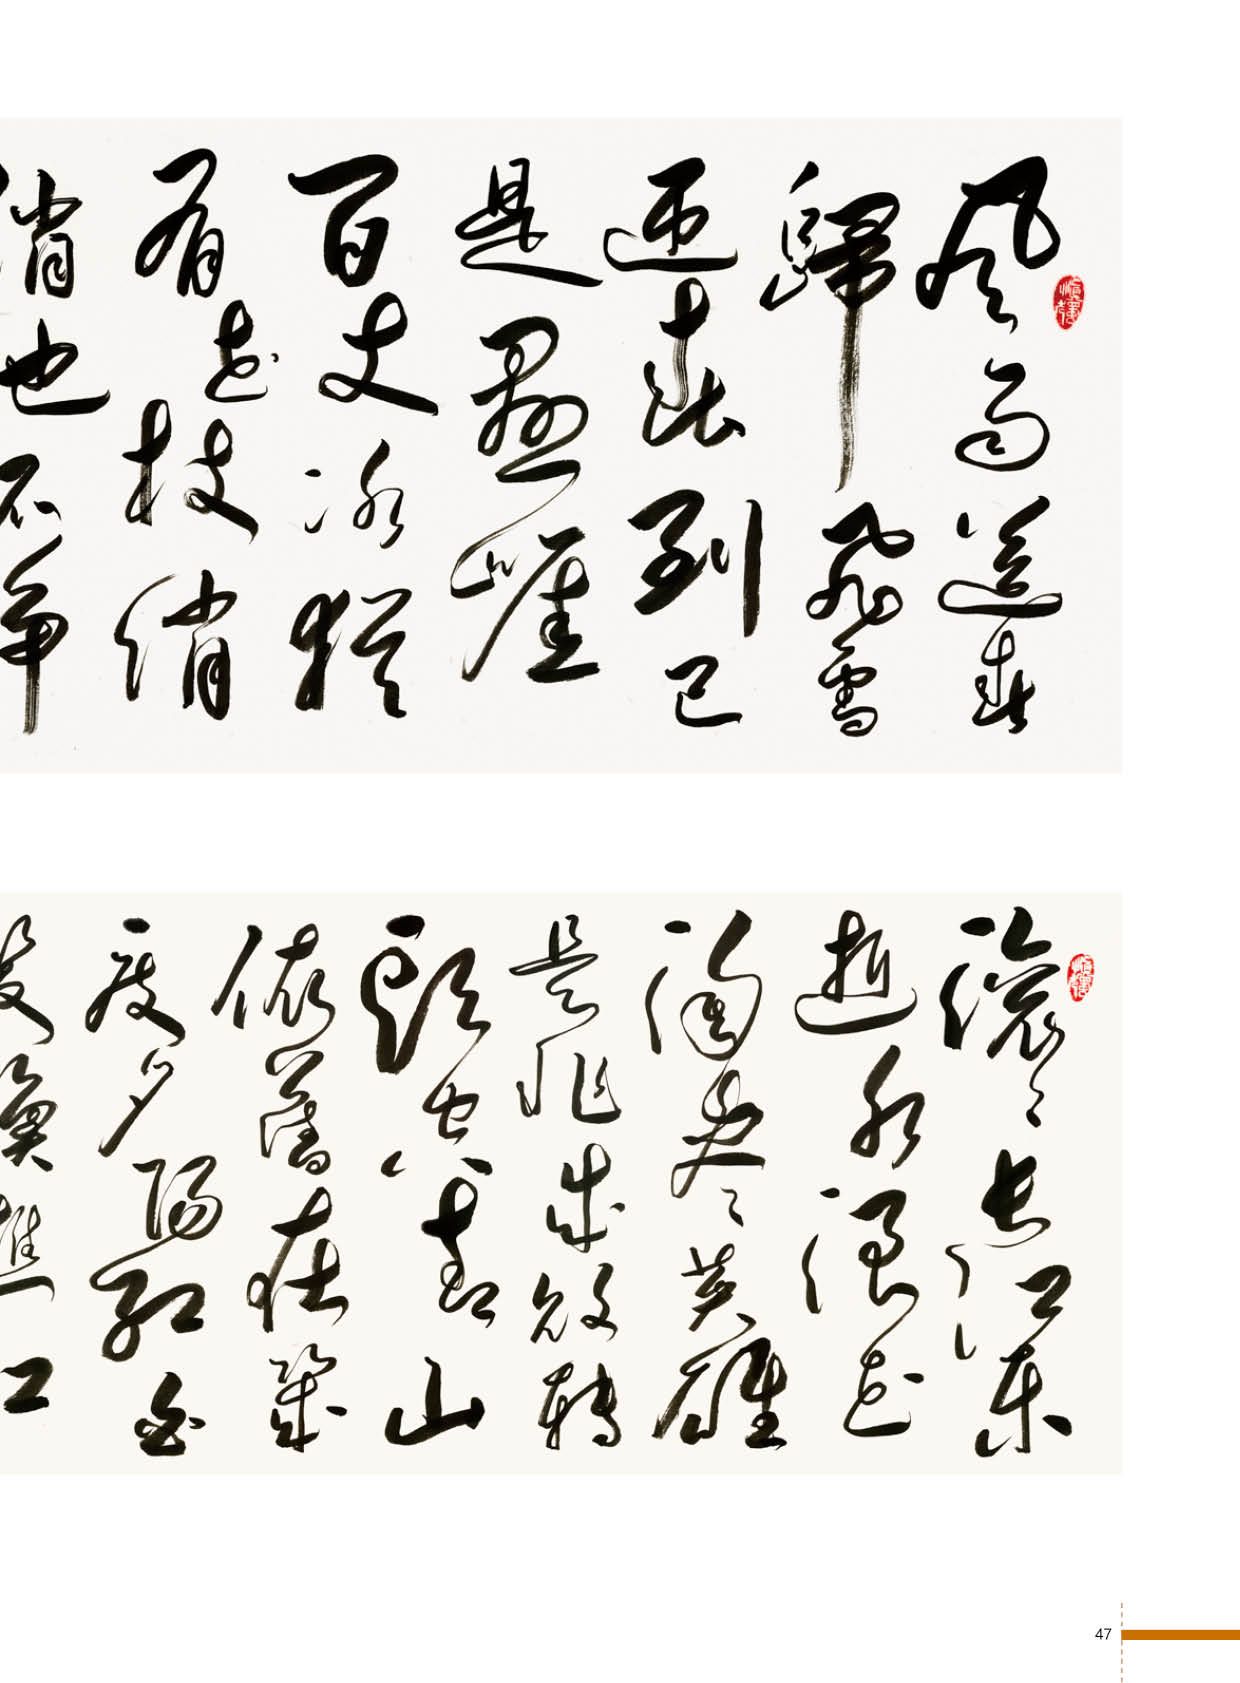 風雨送春
歸飛雪
迎春到已
是懸崖
百丈冰猶
有花枝俏
俏也不爭
滾滾長江東
逝水浪花
淘盡英雄
是非成敗轉
頭空青山
依舊在幾
度夕陽紅白
髮漁樵江
47